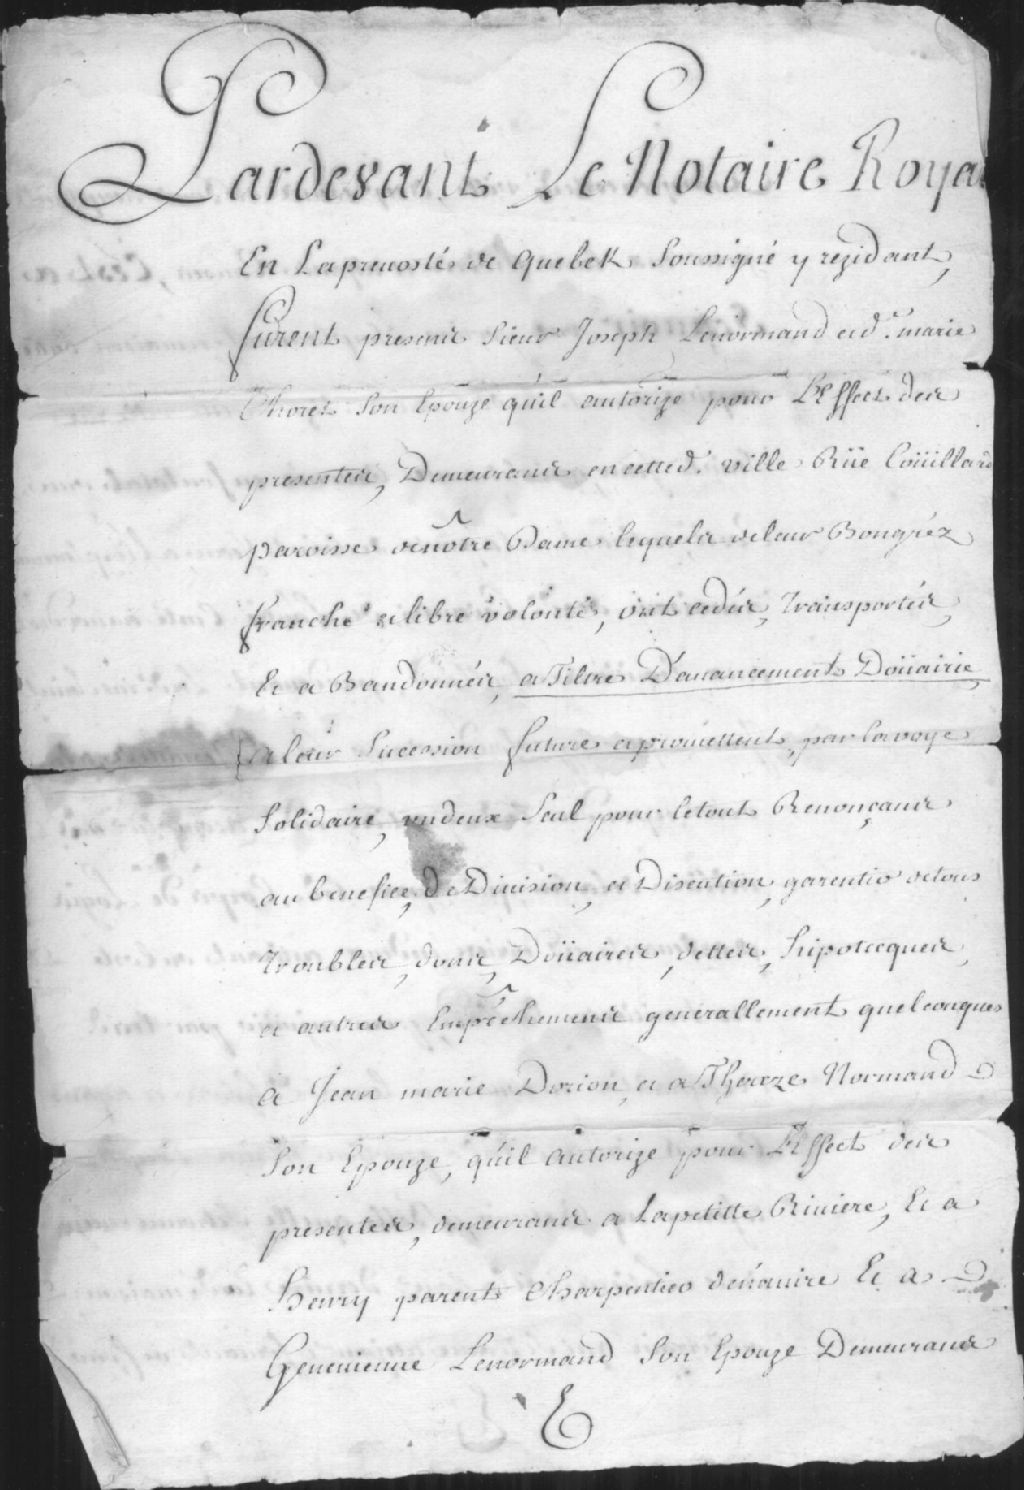 Pardevant Le Notaire Royal
En Laprevosté de Quebek Soussigné y rezidant,
furent presents Sieur Joseph Lenormand et d.e marie
Choret Son Epouze qu'il autorize pour L'Effect des
presentes, Demeurants en cette d. ville Rüe Coüillard
paroisse de nôtre Dame lequels de leur Bongréz
franche et libre volonté, ont cedés, Transportés,
Et a Bandonnés, a Tiltre D'avancement Doüairie,
a leur Sucession future et promettent, par la voye
Solidaire, un deux Seul pour le tout Renonçants
au benefice, de Division, et Discution, garentir de tous
troubles, dons, Doüaires, dettes, hipotecques,
et autres Empêchements generallement quelconques
a Jean marie Dorion, et a Thereze Normand
Son Epouze, qu'il autorize pour L'Effect des
presentes, demeurants a Lapetitte Riviere, Et a
Henry parent Charpentier de navire Et a
Genevieve Lenormand Son Epouze Demeurants